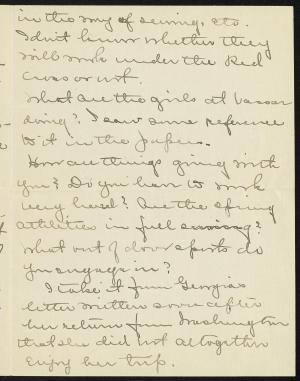 in the way of sewing, etc.
I don't know whether they
will work under the Red
Cross or not.
What are the girls at Vassar
doing? I saw some reference
to it in the papers.
How are things going with
you? Do you have to work
very hard? Are the
athletics in full swing?
What out of door sports do
you engage in?
I take it from Georgia's
letter written soon after
her return from Washington
that she did not altogether
enjoy her trip.